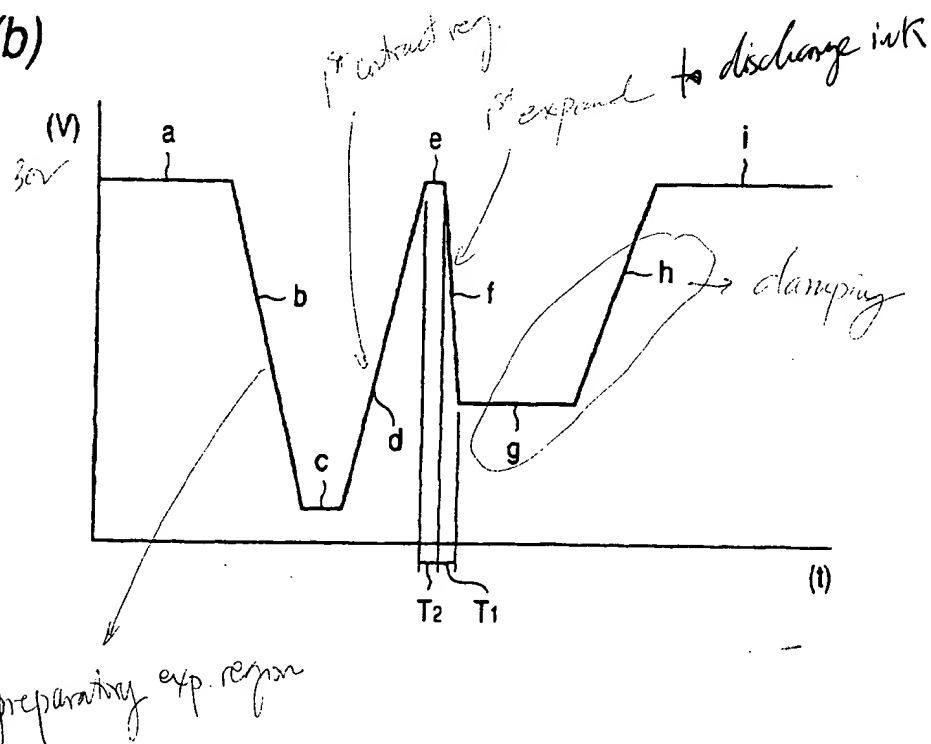 (b)
1st contract reg.
1st expand to discharge ink
(V)
30V
a
e
i
b
f
h
damping
d
g
c
(t)
T2
T1
preparatory exp. region